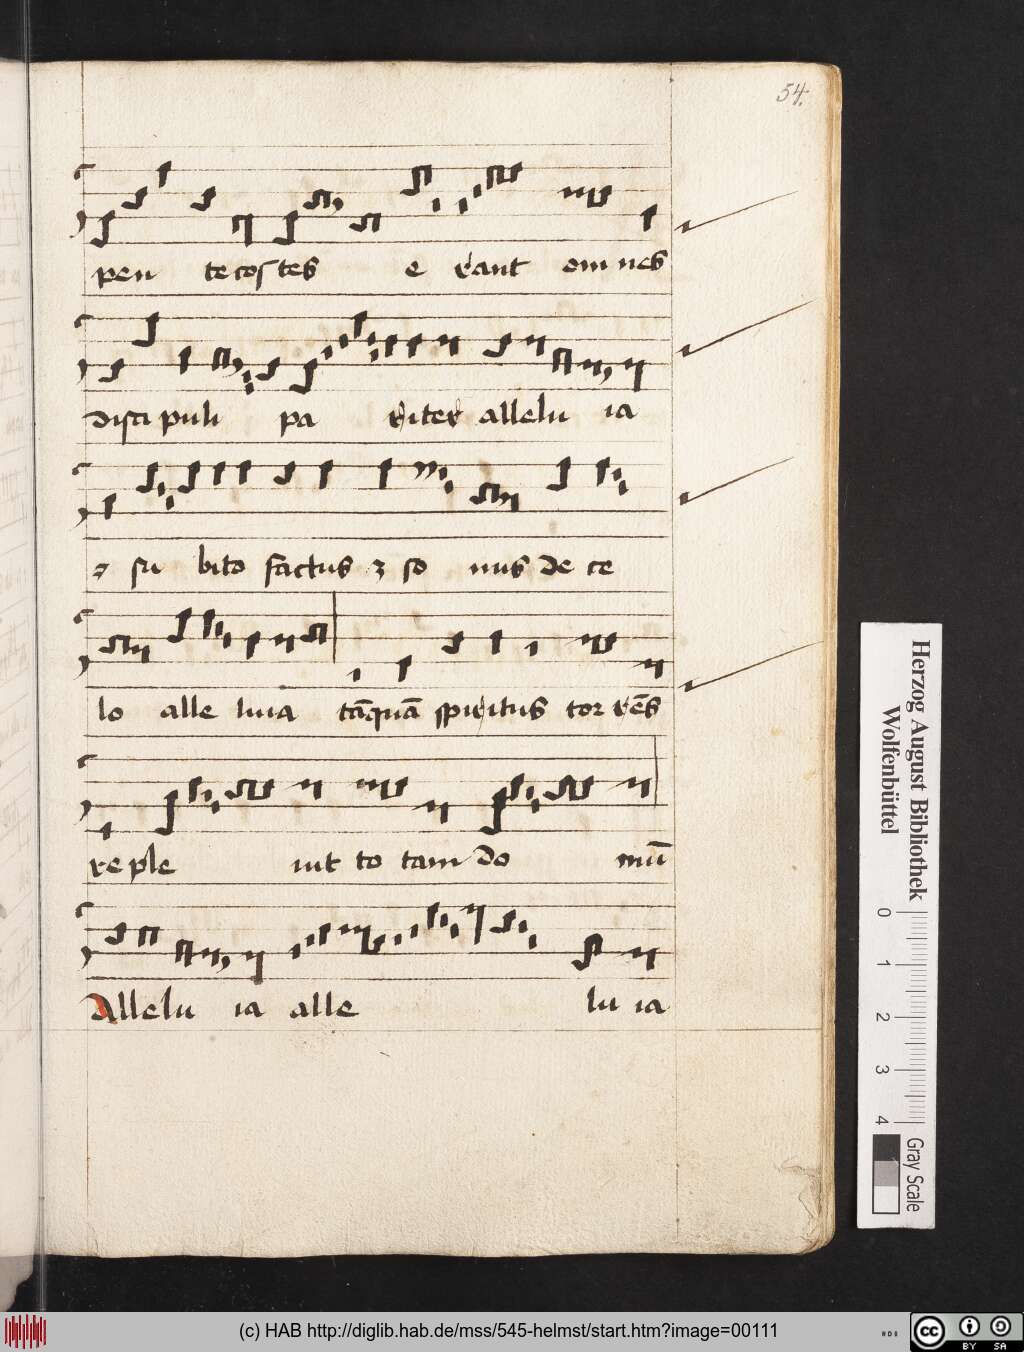 54.
pen te cos tes e rant om nes
disci puli pa riter allelu ia
⁊ su bito factus ꝫ so nus de ce
lo alle luia tāquā spiritus tor rēs
re ple uit to tam do mū
Allelu ia alle lu ia
Herzog August Bibliothek
Wolfenbüttel
0 1 2 3 4
Gray Scale
(c) HAB http://diglib.hab.de/mss/545-helmst/start.htm?image=00111
cc BY SA